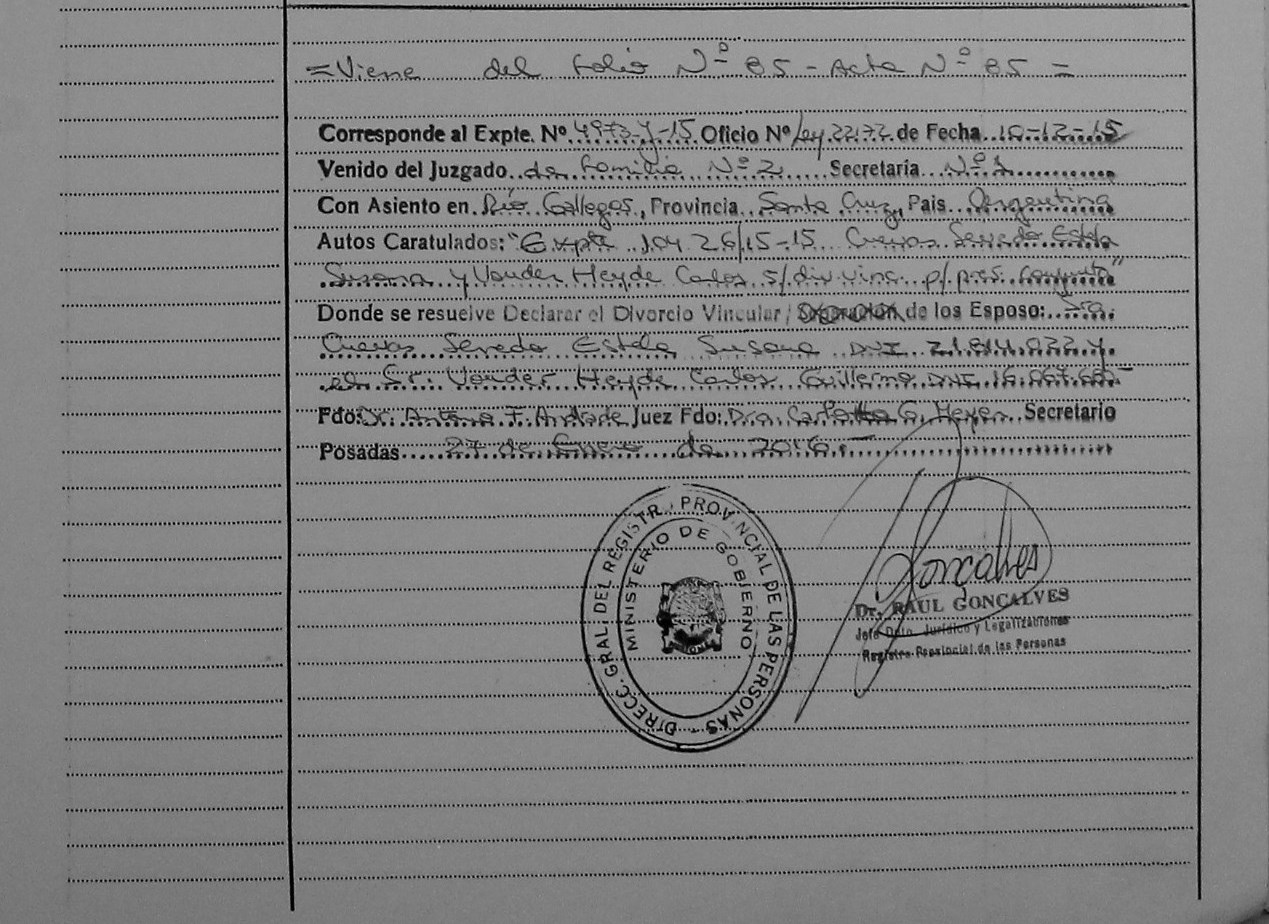 =Viene del Folio Nº 85 - Acta Nº 85 =
Corresponde al Expte. Nº 4973-Y-15 Oficio Nº Ley 22172 de Fecha 10-12-15
Venido del Juzgado de Familia Nº 2 Secretaria Nº 1
Con Asiento en Río Gallegos, Provincia Santa Cruz, Pais Argentina
Autos Caratulados: "Expte 10426/15-15 Cuevas Sereda Estela
Susana y Vander Heyde Carlos s/div. vinc. p/ pres. conjunta"
Donde se resuelve Declarar el Divorcio Vincular / Separacion de los Esposo: Sra.
Cuevas Sereda Estela Susana DNI 21.814.022 y
el Sr. Vander Heyde Carlos Guillermo DNI
Fdo: Dr. Antonio F. Andrade Juez Fdo: Dra. G. Secretario
Posadas 27 de Enero de 2016.-
DIRECC. GRAL. DEL REGISTR. PROVINCIAL DE LAS PERSONAS
MINISTERIO DE GOBIERNO
Gonçalves
Dr. RAUL GONCALVES
Jefe Dpto. Jurídico y Legalizaciones
Registro Provincial de las Personas